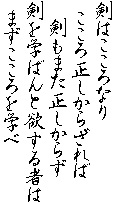 剣はこころなり
こころ正しからざれば
剣もまた正しからず
剣を学ばんと欲する者は
まずこころを学べ